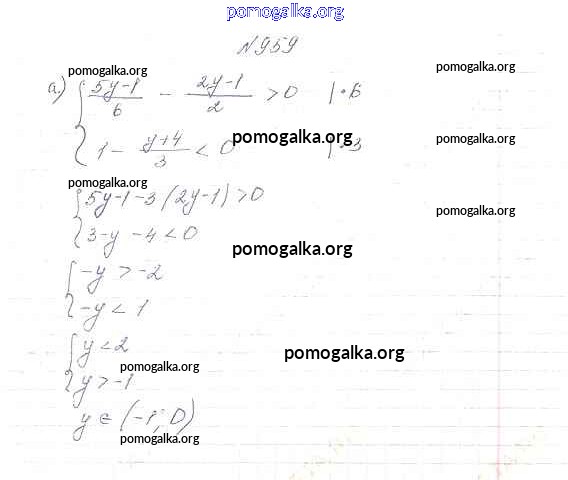 pomogalka.org
N 959
pomogalka.org
pomogalka.org
а) { (5y-1)/6 - (2y-1)/2 > 0 | · 6
pomogalka.org
pomogalka.org
1 - (y+4)/3 < 0 | · 3
pomogalka.org
{ 5y-1-3(2y-1) > 0
pomogalka.org
3-y-4<0
pomogalka.org
{ -y > -2
-y < 1
{ y < 2
pomogalka.org
pomogalka.org
y > -1
y ∈ (-1; 0)
pomogalka.org